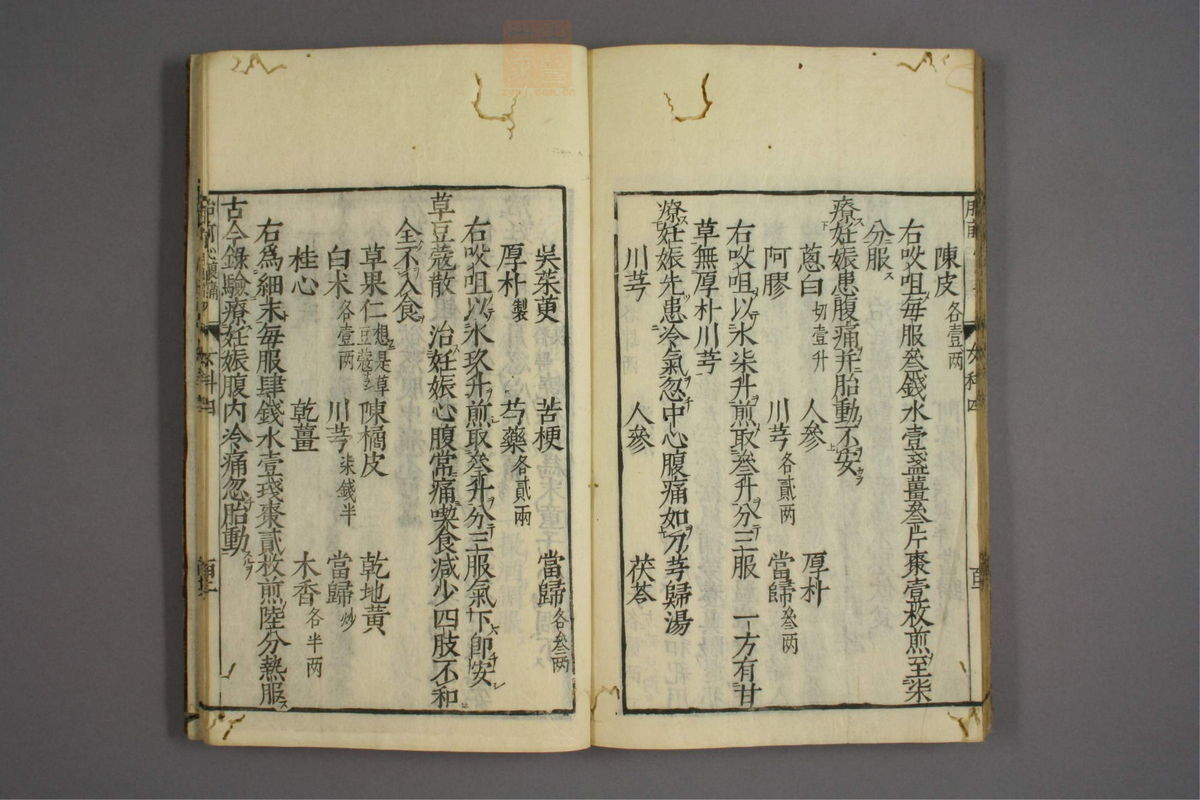 陳皮各壹兩
右㕮咀每服叄錢水壹盞薑叄片棗壹枚煎至柒
分服
療妊娠患腹痛并胎動不安
葱白切壹升 人參 厚朴
阿膠 川芎各貳兩 當歸叄兩
右㕮咀以水柒升煎取叄升分三服 一方有甘
草無厚朴川芎
療妊娠先患冷氣忽中心腹痛如刀芎歸湯
川芎 人參 茯苓
吳茱萸 苦梗 當歸各叄兩
厚朴製 芍藥各貳兩
右㕮咀以水玖升煎取叄升分三服氣下即安
草豆蔻散 治妊娠心腹常痛喫食減少四肢不和
全不入食
草果仁想是草豆蔻 陳橘皮 乾地黃
白术各壹兩 川芎柒錢半 當歸炒
桂心 乾薑 木香各半兩
右爲細末每服肆錢水壹琖棗貳枚煎陸分熱服
古今錄驗療妊娠腹内冷痛忽胎動
女科四